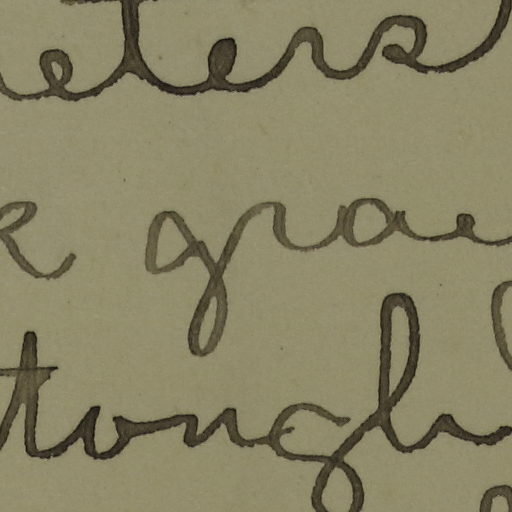 eters
k grae
tough